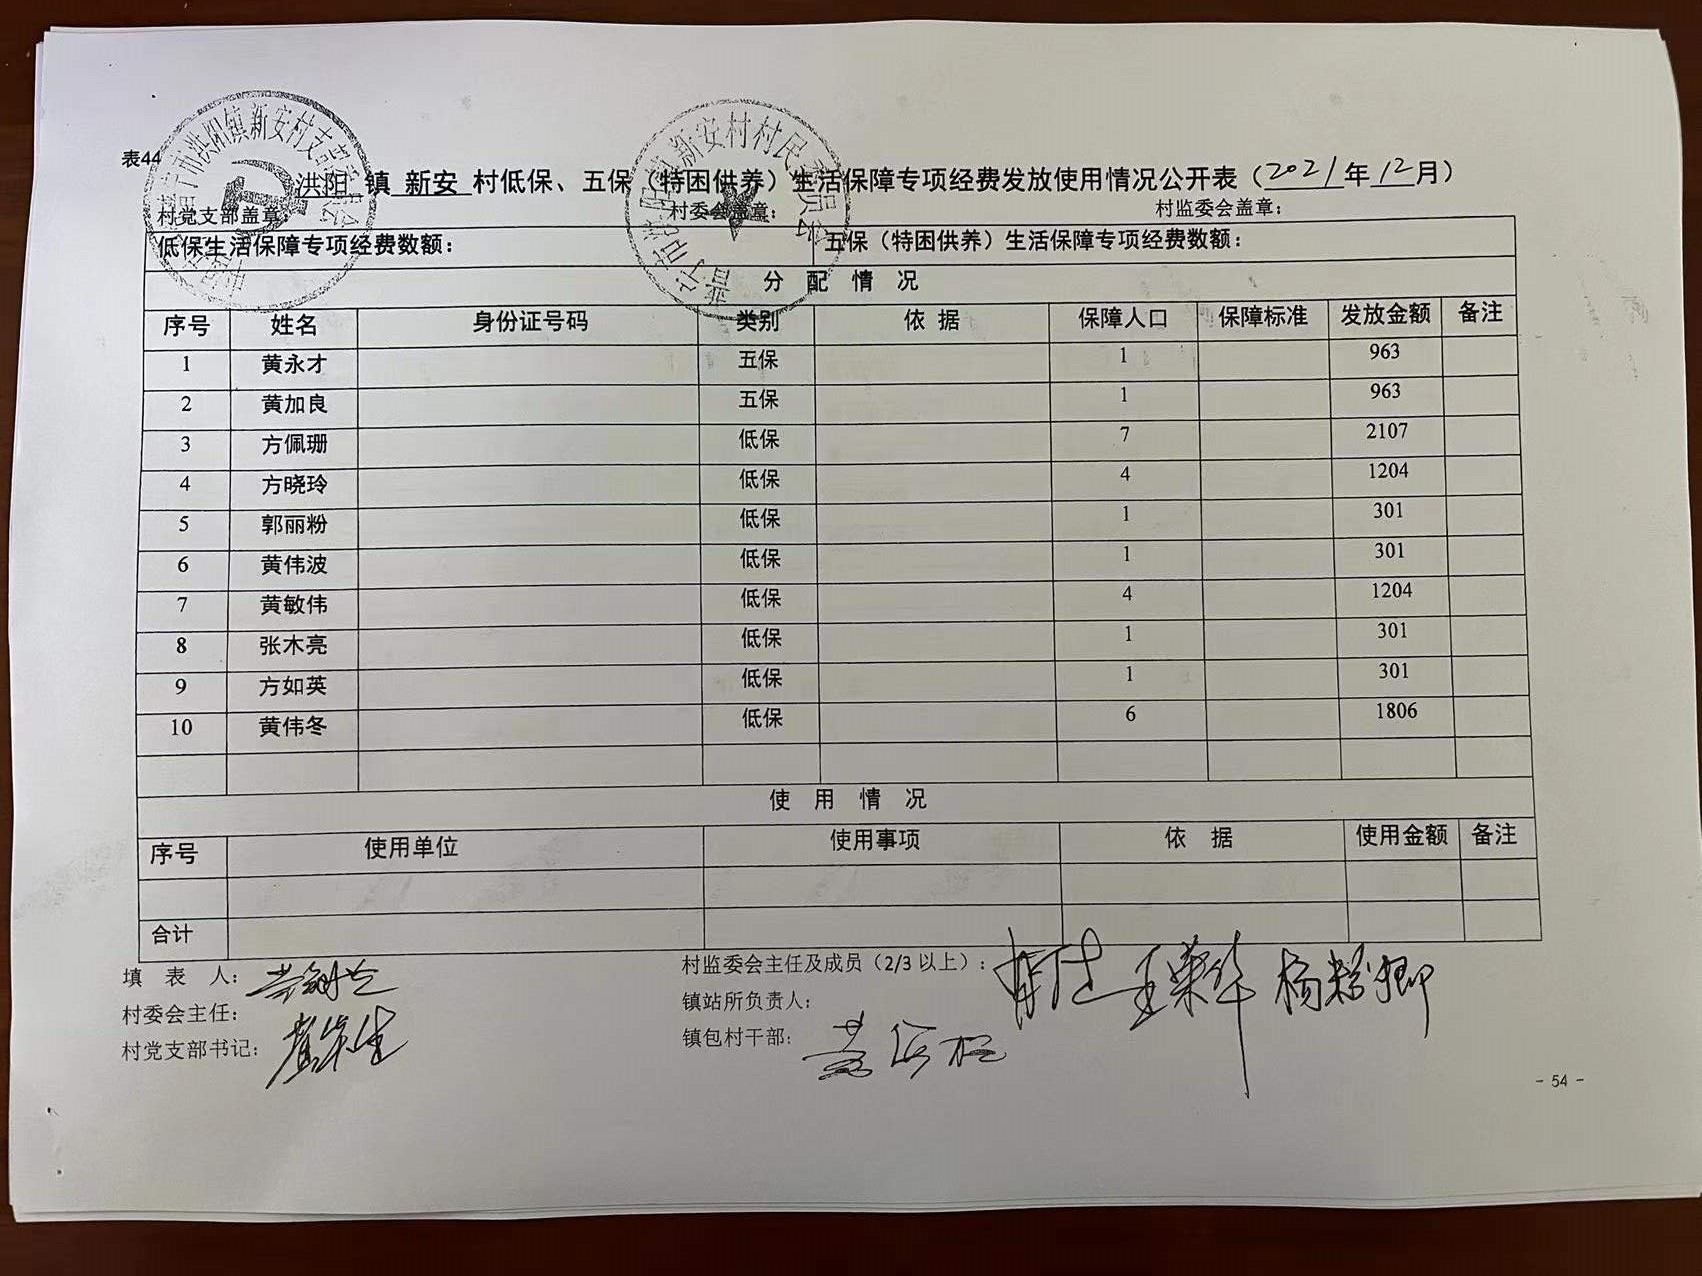 表44
洪阳 镇 新安 村低保、五保（特困供养）生活保障专项经费发放使用情况公开表（2021年12月）
村党支部盖章： 村委会盖章： 村监委会盖章：
低保生活保障专项经费数额： 五保（特困供养）生活保障专项经费数额：
分 配 情 况
序号 姓名 身份证号码 类别 依 据 保障人口 保障标准 发放金额 备注
1 黄永才 五保 1 963
2 黄加良 五保 1 963
3 方佩珊 低保 7 2107
4 方晓玲 低保 4 1204
5 郭丽粉 低保 1 301
6 黄伟波 低保 1 301
7 黄敏伟 低保 4 1204
8 张木亮 低保 1 301
9 方如英 低保 1 301
10 黄伟冬 低保 6 1806
使 用 情 况
序号 使用单位 使用事项 依 据 使用金额 备注
合计
填 表 人： 村监委会主任及成员（2/3 以上）： 王荣华 杨粉卿
村委会主任： 镇站所负责人：
村党支部书记： 镇包村干部：
- 54 -